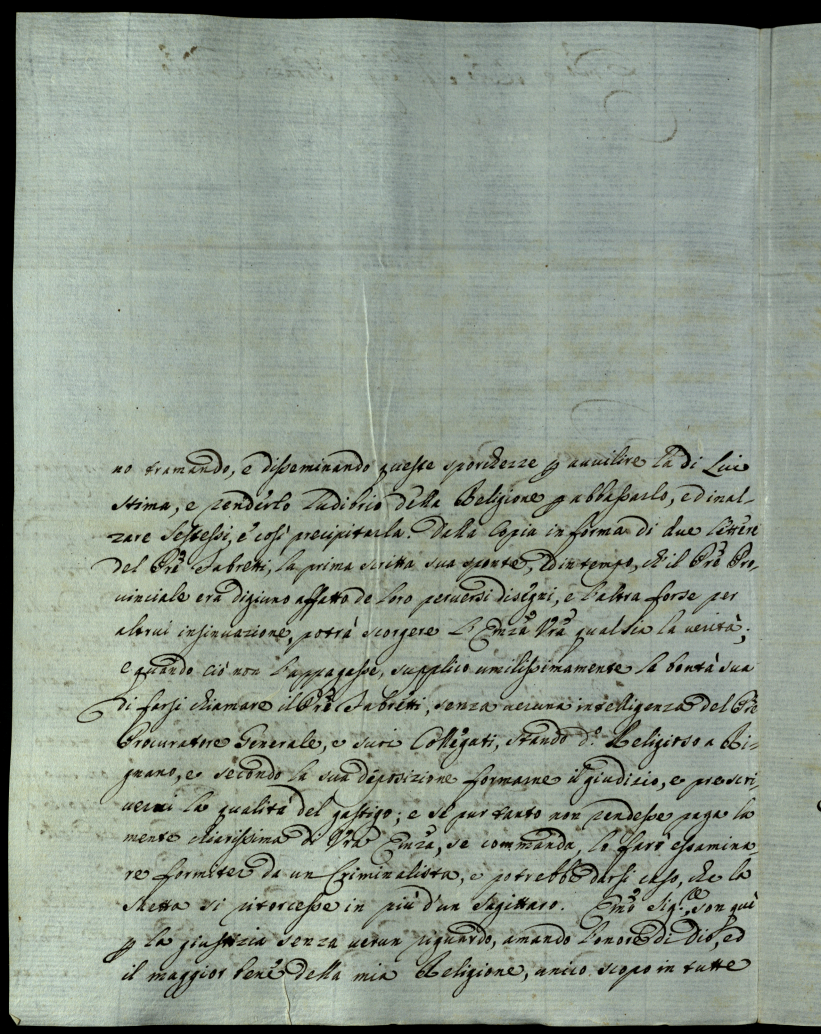 no tramando, e disseminando queste sporchezze p avvilire la di Lui
stima, e renderlo ludibrio della Religione p abbassarlo, ed inal-
zare sestessi, e così precipitarla. Dalla Copia in forma di due lettere
del Prẽ Fabretti, la prima scritta sua sponte, ed in tempo, ch'il Prẽ Pro-
vinciale era digiuno affatto de loro perversi disegni, e l'altra forse per
altrui insinuazione, potrà scorgere l'Emzã Vrã qual sia la verità;
e quando ciò non l'appagasse, supplico umilissimamente la bontà sua
di farsi chiamare il Prẽ Fabretti, senza veruna intelligenza del Prẽ
Procuratore Generale, e suoi Collegati, stando d.º Religioso a Ri-
gnano, e secondo la sua deposizione formarne il giudizio, e prescri-
vermi la qualità del gastigo; e se pur tanto non rendesse paga la
mente chiarissima di Vrã Emzã, se commanda, lo farò essamina-
re formiter da un Criminalista, e potrebbe darsi caso, che la
Saetta si ritorcesse in più d'un Sagittaro. Emõ Sig.re, son quì
p la giustizia senza verun riguardo, amando l'onore di Dio, ed
il maggior bene della mia Religione, unico scopo in tutte